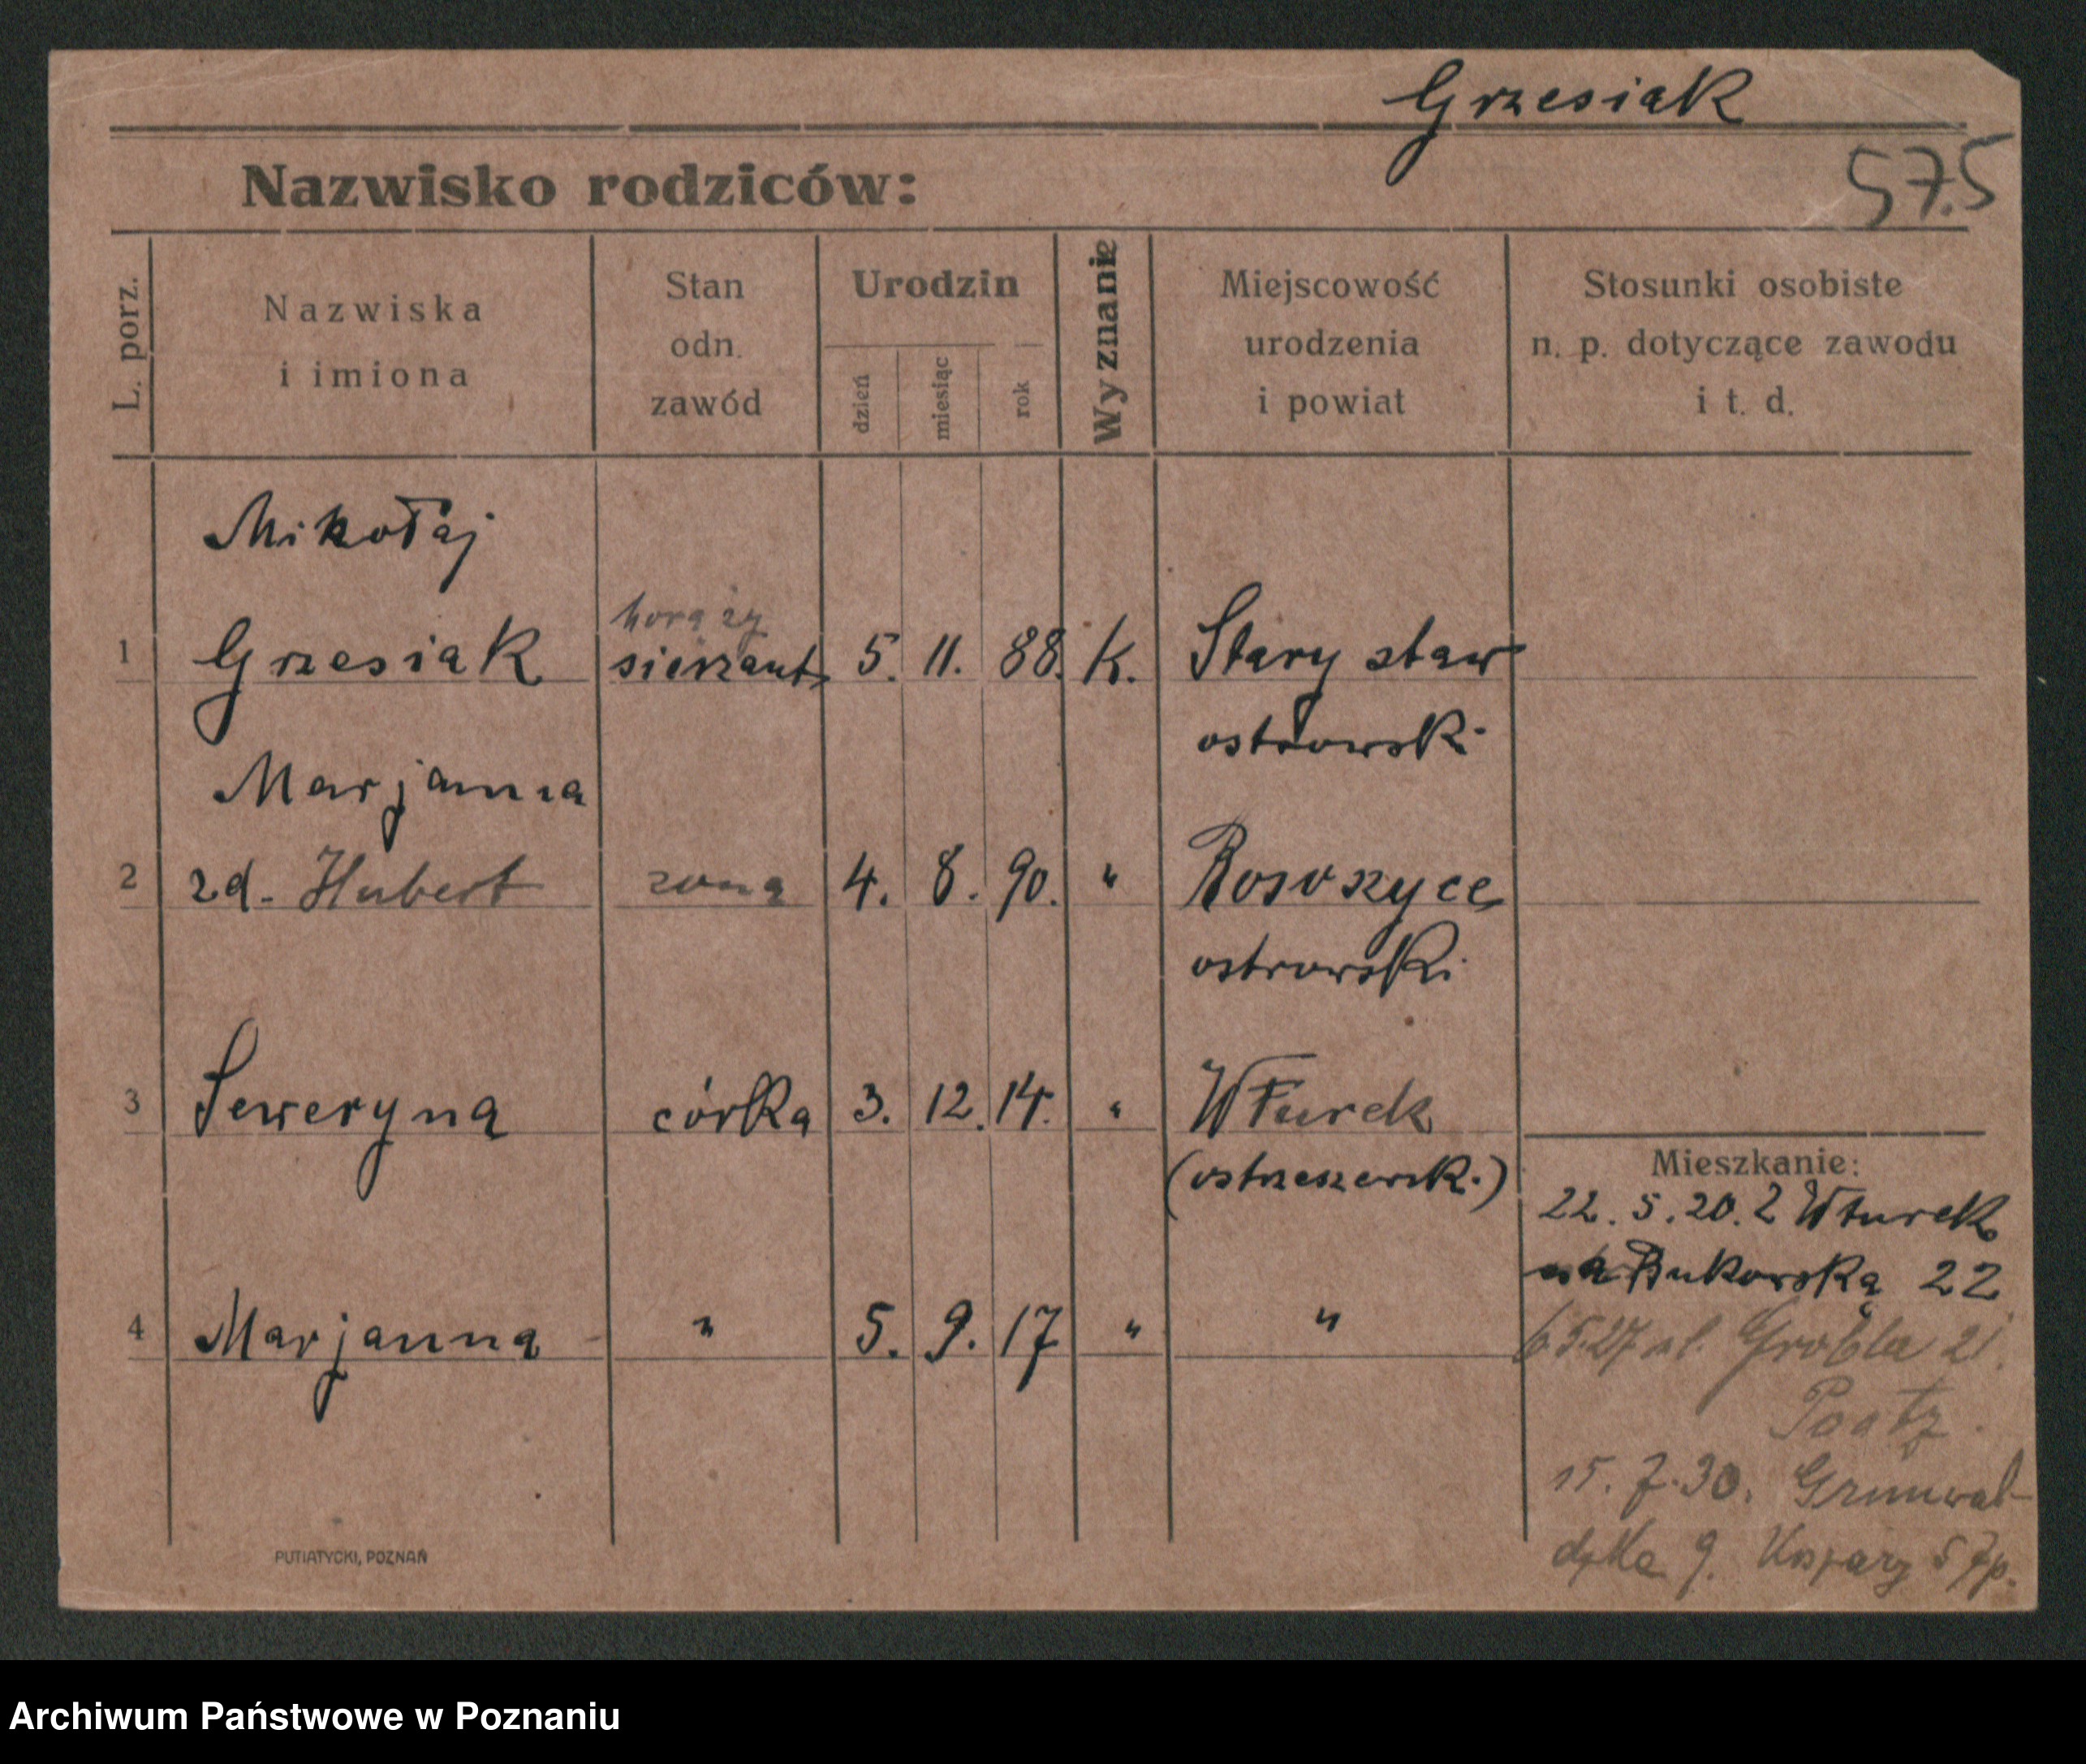 Grzesiak
Nazwisko rodziców:
575
L. porz.
Nazwiska
i imiona
Stan
odn.
zawód
Urodzin
dzień
miesiąc
rok
Wyznanie
Miejscowość
urodzenia
i powiat
Stosunki osobiste
n. p. dotyczące zawodu
i t. d.
Mikołaj
horąży
1 Grzesiak sierżant 5. 11. 88. K. Stary staw
ostrowski
Marjanna
2 zd. Hubert żona 4. 8. 90. " Rososzyce
ostrowski
3 Seweryna córka 3. 12. 14. " WTurek
(ostrzeszowsk.)
4 Marjanna " 5. 9. 17 " "
Mieszkanie:
22. 5. 20. z WTurek
na Bukowską 22
6 5.27 pl. Grobla 21.
15. 7. 30. Grunwal-
dzka 9. Koszary 57p.
PUTIATYCKI, POZNAŃ
Archiwum Państwowe w Poznaniu